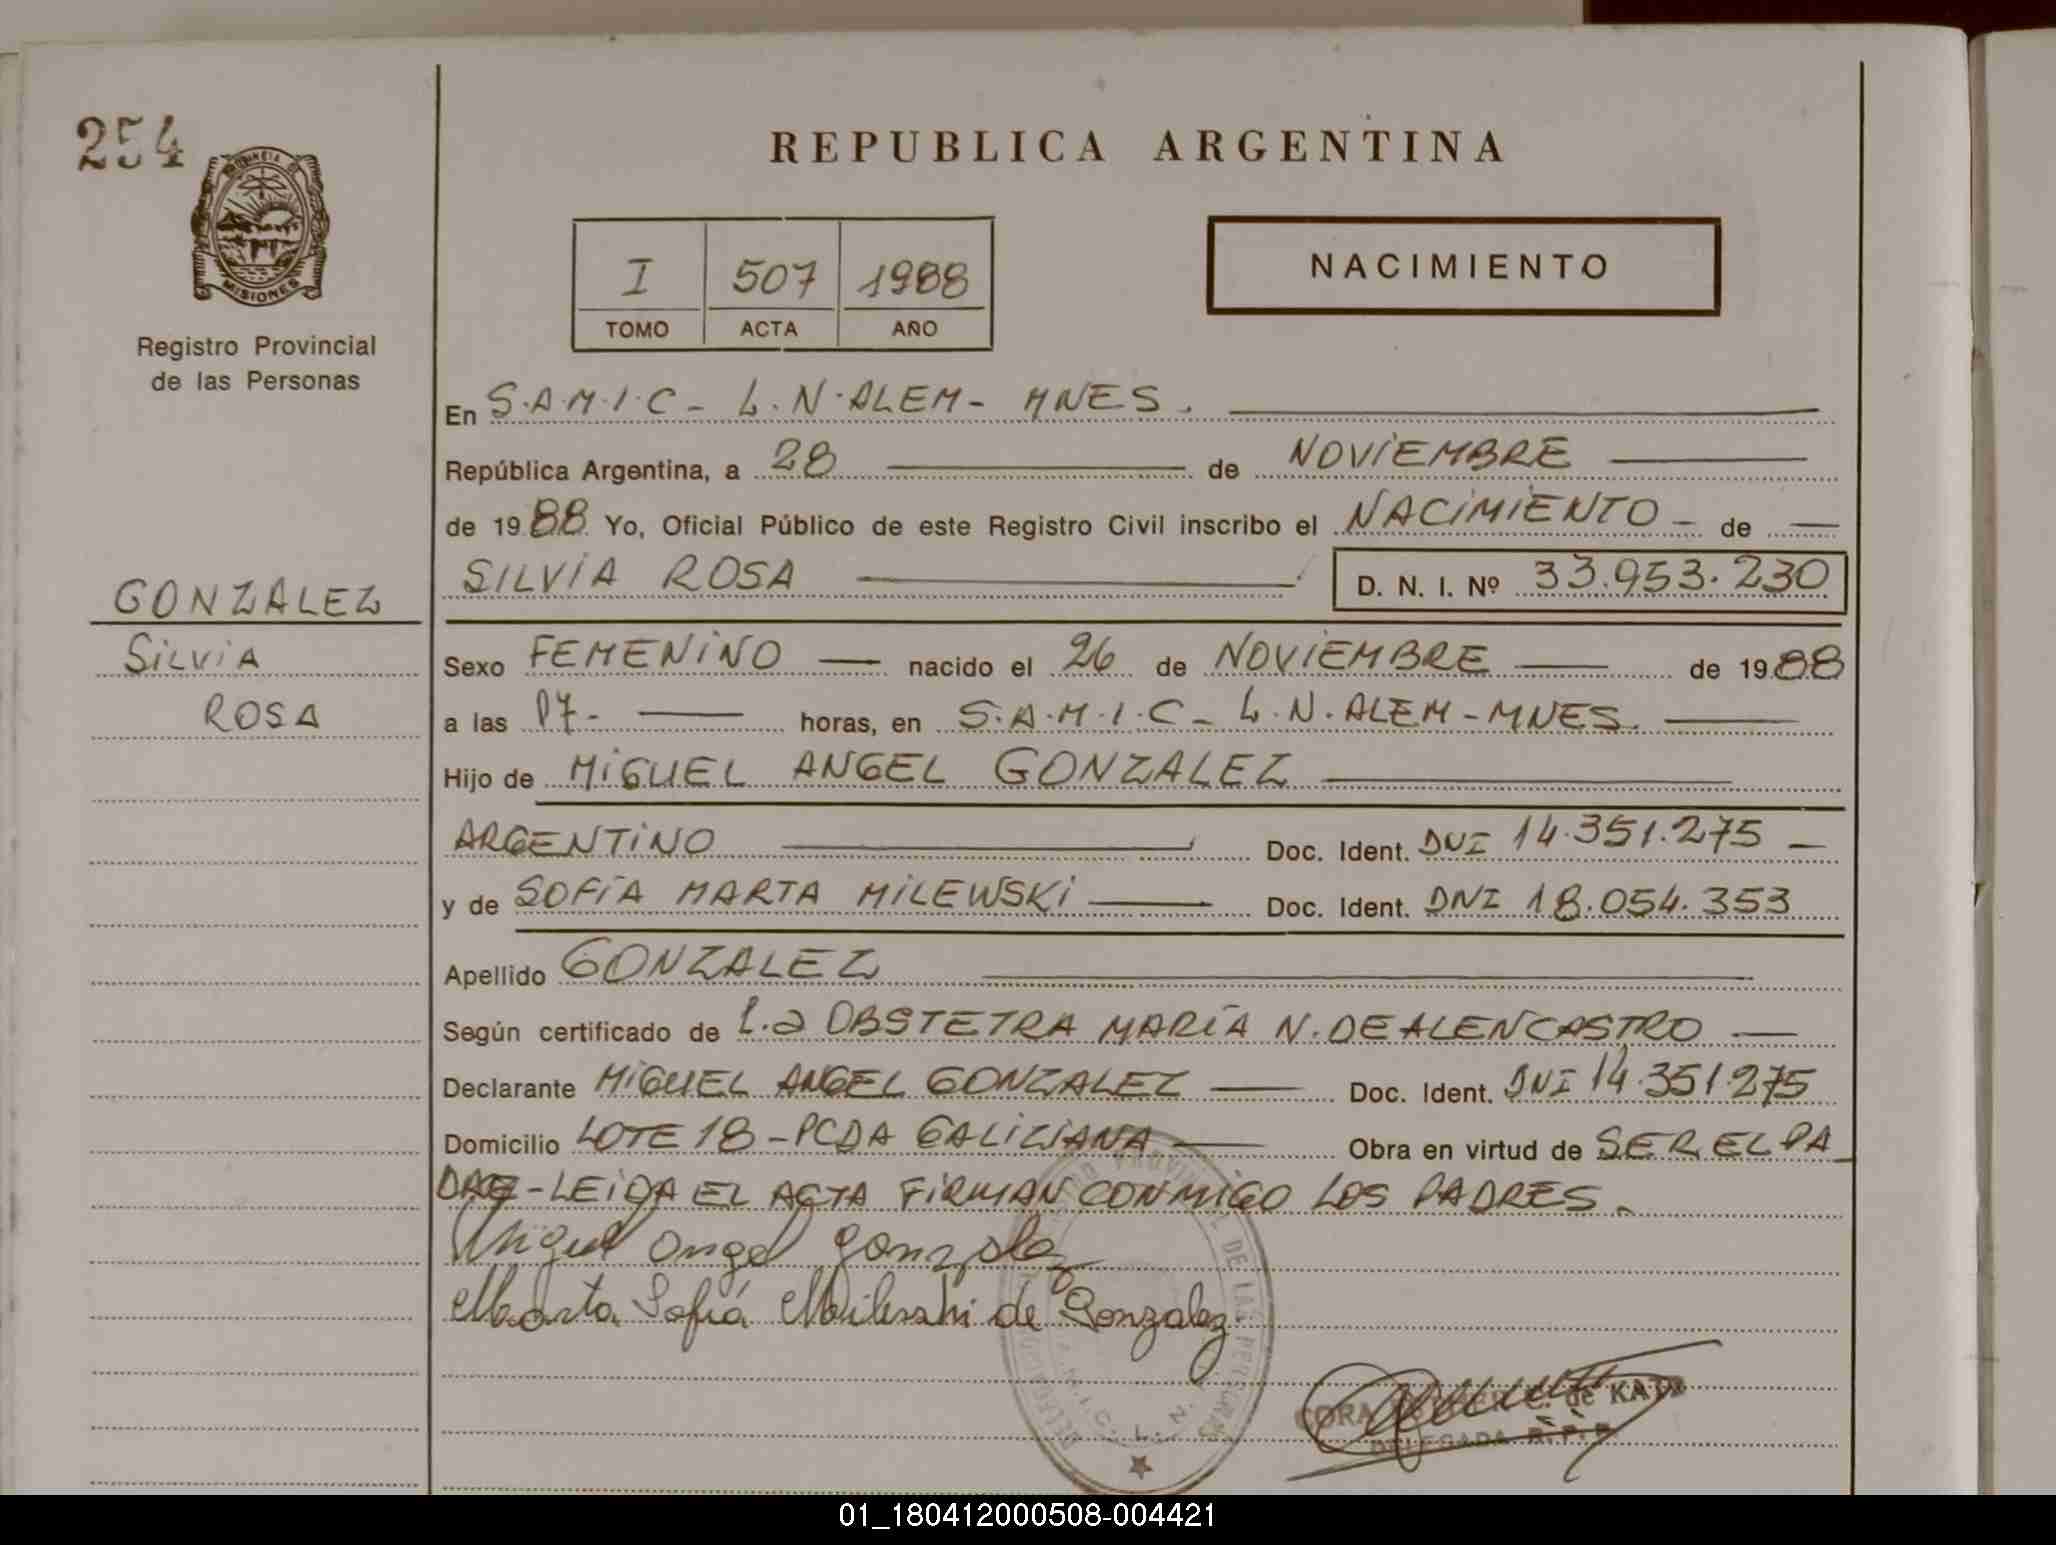 254
REPUBLICA ARGENTINA
PROVINCIA
MISIONES
Registro Provincial
de las Personas
I 507 1988
TOMO ACTA AÑO
NACIMIENTO
En S.A.M.I.C - L.N.ALEM - MNES.
República Argentina, a 28 de NOVIEMBRE
de 1988. Yo, Oficial Público de este Registro Civil inscribo el NACIMIENTO - de
SILVIA ROSA D. N. I. Nº 33.953.230
GONZALEZ
SILVIA
ROSA
Sexo FEMENINO nacido el 26 de NOVIEMBRE de 1988
a las 17- horas, en S.A.M.I.C - L.N.ALEM - MNES.
Hijo de MIGUEL ANGEL GONZALEZ
ARGENTINO Doc. Ident. DNI 14.351.275 -
y de SOFÍA MARTA MILEWSKI Doc. Ident. DNI 18.054.353
Apellido GONZALEZ
Según certificado de L.a OBSTETRA MARÍA N. DE ALENCASTRO
Declarante MIGUEL ANGEL GONZALEZ Doc. Ident. DNI 14.351.275
Domicilio LOTE 18 - PCDA GALIZIANA Obra en virtud de SER EL PA-
DRE - LEIDA EL ACTA FIRMAN CONMIGO LOS PADRES.
Miguel Angel Gonzalez
Marta Sofiá Mileski de Gonzalez
PROVINCIAL DE LAS PERSONAS
CORA de KATZ
DELEGADA R.P.P.
01_180412000508-004421